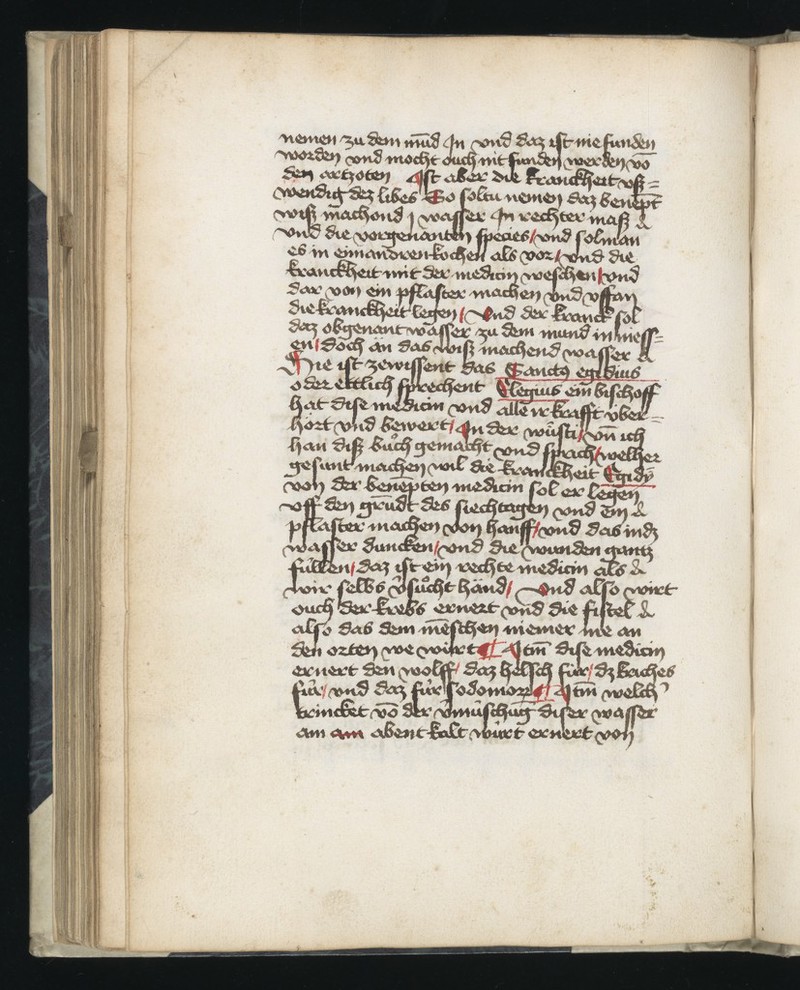 nemen zu dem mūd Jn vnd daz ist nie funden
worden vnd mocht ouch nit funden werden vō
den artzoten Jst aber die kranckheit vß=
wendig dez libes So soltu nemen daz benēpt
wiß machond j wasser Jn rechter maß
vnd die vorgenanten species / vnd solman
es in einandren kochen als vor / vnd die
kranckheit mit der medicin weschen / vnd
dar von ein pflaster machen vnd vffan
die kranckheit legen / Vnd der kranck sol
daz obgenant wasser zu dem mund in mess=
en / doch än das wiß machend wasser
Hie ist zewissent das Sanctꝰ egidius
oder ettlich sprechent Elegius eim bischoff
hät dise medicin vnd alle ir krafft über=
hört vnd bewert / Jn der wůsti / vn̄ ich
han diß bůch gemacht vnd sprach / welher
gesunt machen wil die kranckheit Egidÿ
von der benēpten medicin sol er legen
vff den grūdt des siechtagen vnd ein
pflaster machen von hanff / vnd das in dz
wasser duncken / vnd die wunden gantz
füllen / daz ist ein rechte medicin als
wir selbs v̉sůcht händ / Vnd also wirt
ouch der krebs ernert vnd die fistel
also das dem mēschen niemer me an
den orten we wirt ¶ Jtm̄ dise medicin
ernert den wolff / daz helsch für / dz kaches
für / vnd daz für sodomorꝝ ¶ Jtm̄ welch’
trincket vō der v̉müschūg diser wasser
am am abent kalt würt ernert von